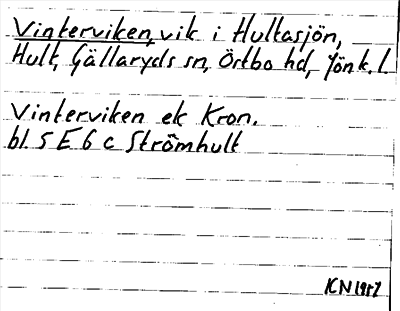 Vinterviken, vik i Hultasjön,
Hult, Gällaryds sn, Östbo hd, Jönk. l.
Vinterviken ek Kron.
bl 5 E 6 c Strömhult